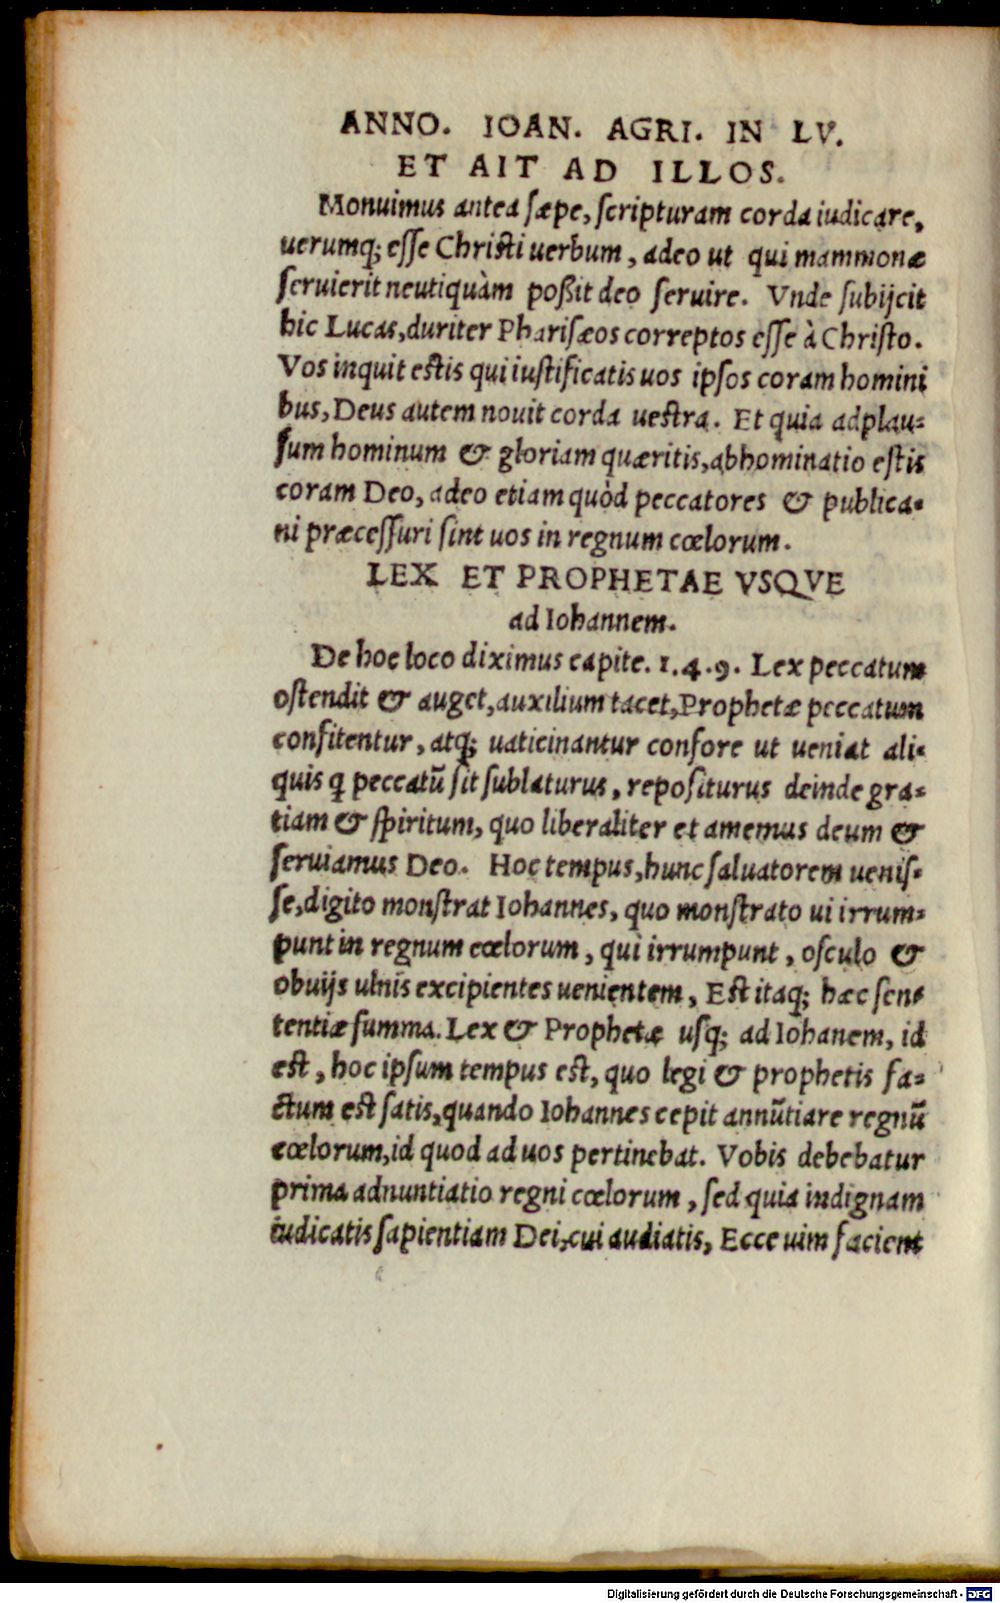 ANNO. IOAN. AGRI. IN LV.
ET AIT AD ILLOS.
Monuimus antea sæpe, scripturam corda iudicare,
uerumq; esse Christi uerbum, adeo ut qui mammonæ
seruierit neutiquàm poßit deo seruire. Vnde subijcit
hic Lucas, duriter Pharisæos correptos esse à Christo.
Vos inquit estis qui iustificatis uos ipsos coram homini
bus, Deus autem nouit corda uestra. Et quia adplau-
sum hominum & gloriam quæritis, abhominatio estis
coram Deo, adeo etiam quòd peccatores & publica-
ni præcessuri sint uos in regnum cœlorum.
LEX ET PROPHETAE VSQVE
ad Iohannem.
De hoc loco diximus capite. 1.4.9. Lex peccatum
ostendit & auget, auxilium tacet, Prophetæ peccatum
confitentur, atq; uaticinantur confore ut ueniat ali-
quis q peccatū sit sublaturus, repositurus deinde gra-
tiam & spiritum, quo liberaliter et amemus deum &
seruiamus Deo. Hoc tempus, hunc saluatorem uenis-
se, digito monstrat Iohannes, quo monstrato ui irrum-
punt in regnum cœlorum, qui irrumpunt, osculo &
obuijs ulnis excipientes uenientem, Est itaq; hæc sen-
tentiæ summa. Lex & Prophetæ usq; ad Iohanem, id
est, hoc ipsum tempus est, quo legi & prophetis fa-
ctum est satis, quando Iohannes cepit annūtiare regnū
cœlorum, id quod ad uos pertinebat. Vobis debebatur
prima adnuntiatio regni cœlorum, sed quia indignam
iudicatis sapientiam Dei, cui audiatis, Ecce uim facient
Digitalisierung gefördert durch die Deutsche Forschungsgemeinschaft - DFG